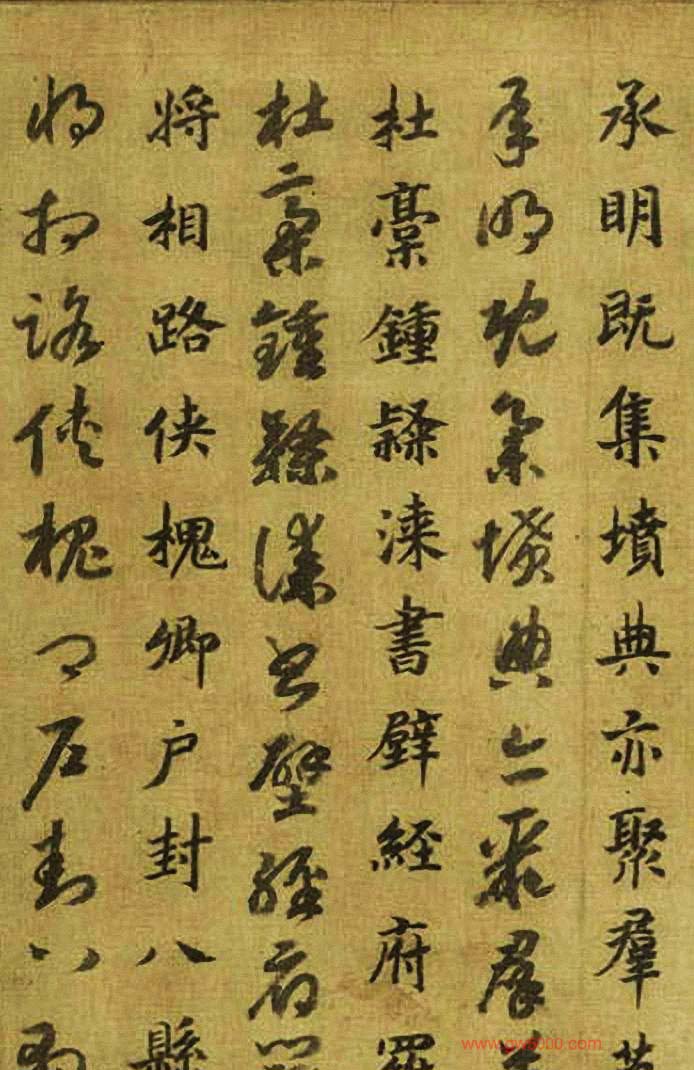 承明既集墳典亦聚羣
承明既集墳典亦聚羣
杜稾鍾隸漆書壁經府羅
杜稾鍾隸漆書壁經府羅
將相路侠槐卿户封八縣
將相路侠槐卿户封八縣